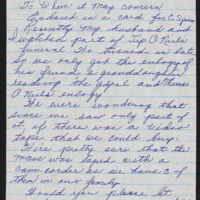 To Whom it May concern
Enclosed is a card for C. Span
Recently my husband and
I watched a part of Tip O'Neils
funeral. He turned in late
so we only got the eulogy of
his friend & granddaughter
reading the Gospel and Thomas
O'Neils eulogy.
We were wondering that
since we saw only part of
it if there was a video
tape that we could buy.
We're pretty sure that the
mass was taped with a
cam corder as we have 3 of
then in our family.
Would you please let